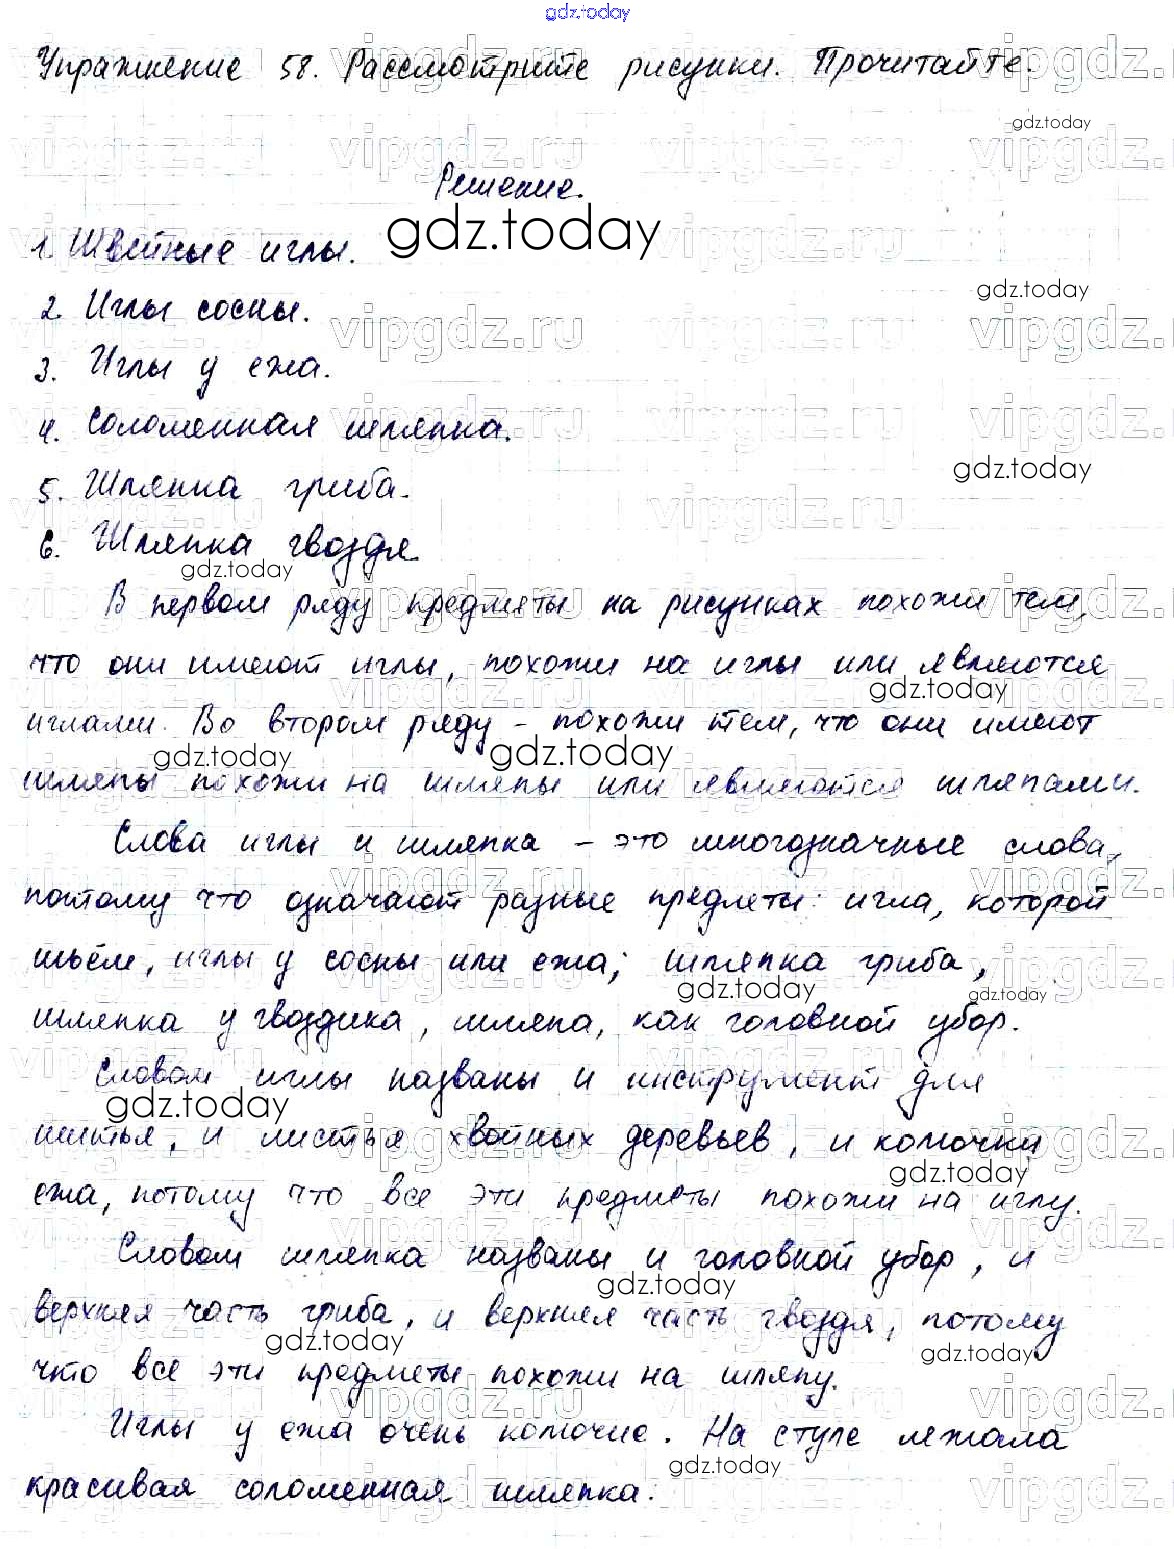 gdz.today
Упражнение 58. Рассмотрите рисунки. Прочитайте.
gdz.today
Решение.
gdz.today
1. Швейные иглы.
gdz.today
2. Иглы сосны.
3. Иглы у ежа.
4. Соломенная шляпка.
gdz.today
5. Шляпка гриба.
6. Шляпка гвоздя.
gdz.today
В первом ряду предметы на рисунках похожи тем,
что они имеют иглы, похожи на иглы или являются
gdz.today
иглами. Во втором ряду - похожи тем, что они имеют
gdz.today gdz.today
шляпы похожи на шляпы или являются шляпами.
Слова иглы и шляпка - это многозначные слова,
потому что означают разные предметы: игла, которой
шьём, иглы у сосны или ежа; шляпка гриба,
gdz.today gdz.today
шляпка у гвоздика, шляпа, как головной убор.
Словом иглы названы и инструмент для
gdz.today
шитья, и листья хвойных деревьев, и колючки
gdz.today
ежа, потому что все эти предметы похожи на иглу.
Словом шляпка названы и головной убор, и
gdz.today
верхняя часть гриба, и верхняя часть гвоздя, потому
gdz.today gdz.today
что все эти предметы похожи на шляпу.
Иглы у ежа очень колючие. На стуле лежала
gdz.today
красивая соломенная шляпка.